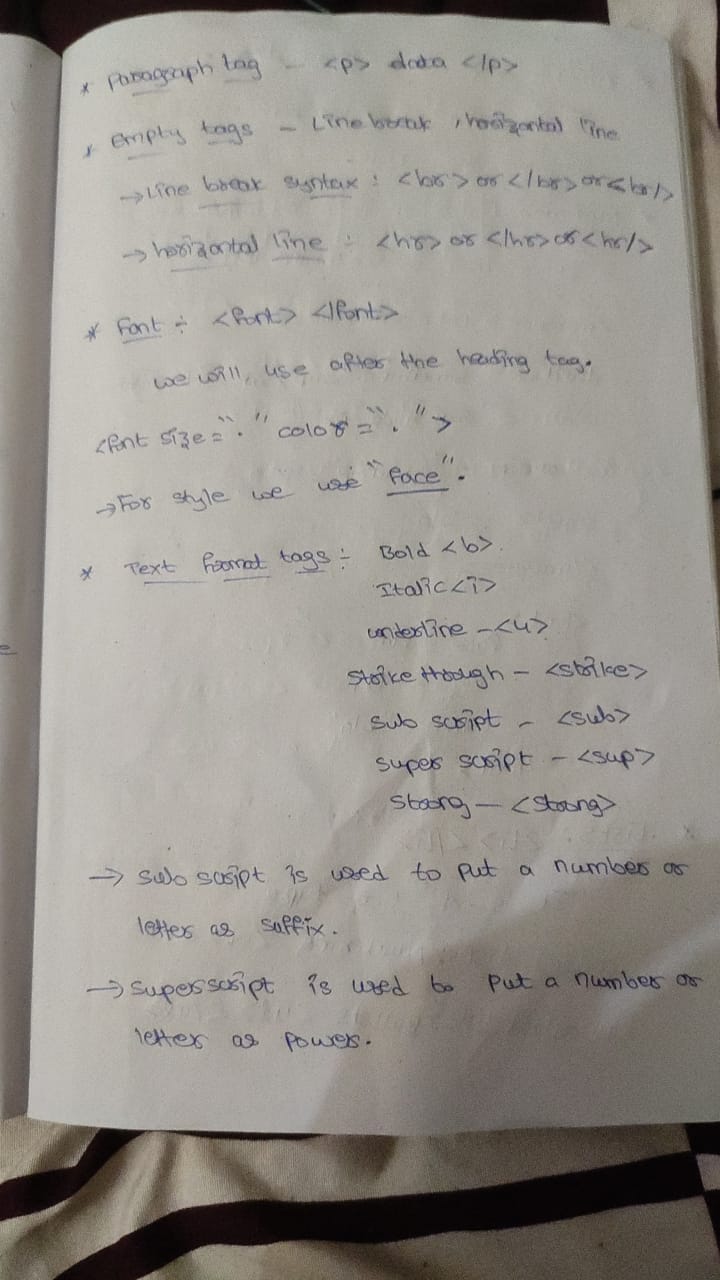 * Paragraph tag - <p> data </p>
* Empty tags - Line break, horizontal line
→ Line break syntax : <br> or </br> or <br/>
→ horizontal line : <hr> or </hr> or <hr/>
* Font : <font> </font>
we will, use after the heading tag.
<font size="." color=".">
→ For style we use "face".
* Text format tags : Bold <b>
Italic <i>
underline - <u>
strike through - <strike>
sub script - <sub>
super script - <sup>
Strong - <strong>
→ sub script is used to put a number or
letter as suffix.
→ superscript is used to put a number or
letter as power.